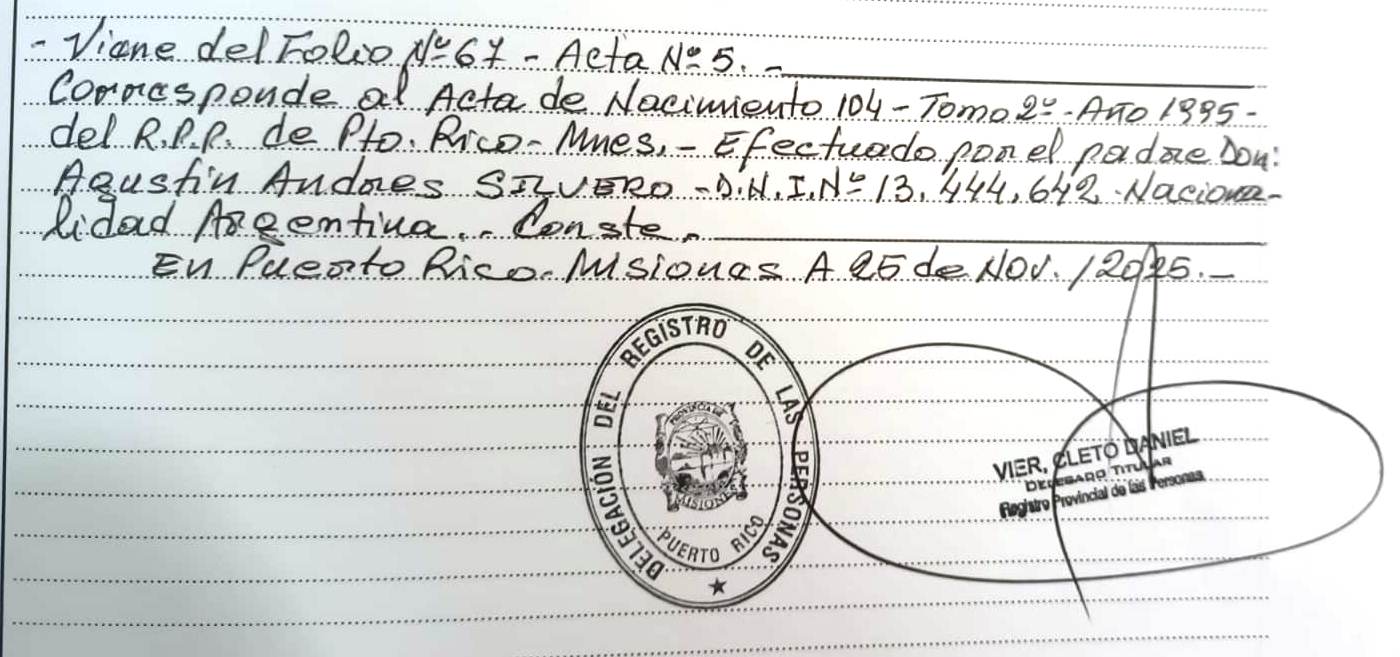 - Viene del Folio Nº 67 - Acta Nº 5. -
Corresponde al Acta de Nacimiento 104 - Tomo 2º - Año 1995 -
del R.P.P. de Pto. Rico - Mnes. - Efectuado por el padre Don:
Agustín Andres SILVERO - D.N.I. Nº 13.444.642 - Naciona-
lidad Argentina. - Conste. -
En Puerto Rico - Misiones A 25 de NOV. / 2025. -
DELEGACIÓN DEL REGISTRO DE LAS PERSONAS
PROVINCIA DE
MISIONES
PUERTO RICO
VIER, CLETO DANIEL
DELEGADO TITULAR
Registro Provincial de las Personas